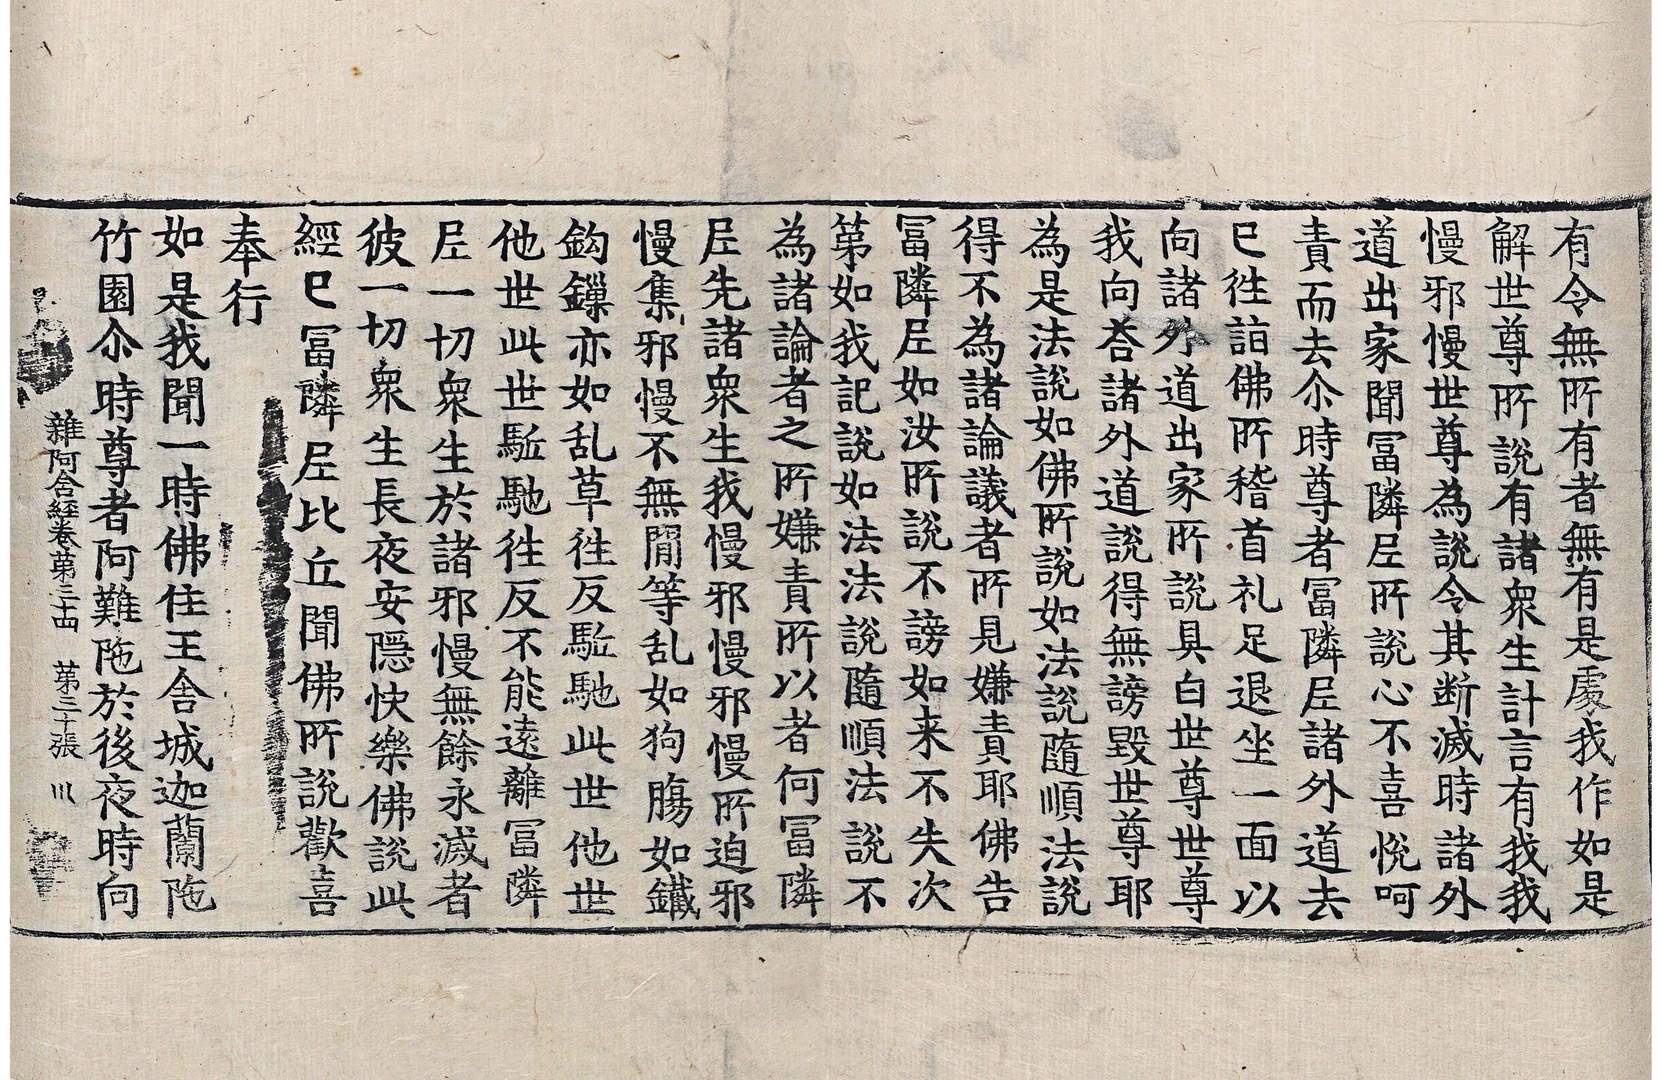 有令無所有者無有是處我作如是
解世尊所說有諸衆生計言有我我
慢邪慢世尊為說令其断滅時諸外
道出家聞冨隣𡰱所說心不喜悅呵
責而去尒時尊者冨隣𡰱諸外道去
已徃詣佛所稽首礼足退坐一面以
向諸外道出家所說具白世尊世尊
我向荅諸外道說得無謗毀世尊耶
為是法說如佛所說如法說隨順法說
得不為諸論議者所見嫌責耶佛告
冨隣𡰱如汝所說不謗如来不失次
第如我記說如法法說隨順法說不
為諸論者之所嫌責所以者何冨隣
𡰱先諸衆生我慢邪慢邪慢所迫邪
慢集邪慢不無閒等乱如狗腸如鐵
鈎鏁亦如乱草徃反駈馳此世他世
他世此世駈馳徃反不能遠離冨隣
𡰱一切衆生於諸邪慢無餘永滅者
彼一切衆生長夜安隱快樂佛說此
經已冨隣𡰱比丘聞佛所說歡喜
奉行
如是我聞一時佛住王舍城迦蘭陁
竹園尒時尊者阿難陁於後夜時向
雜阿含経卷苐三十四 苐三十張 川